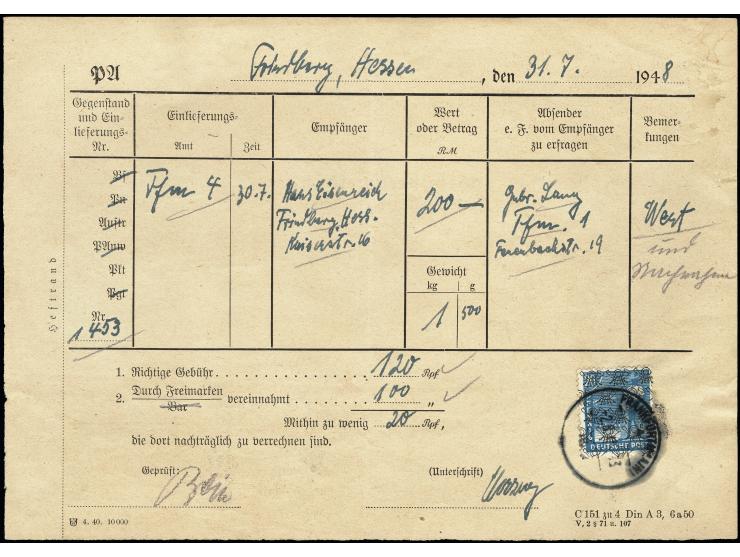 PA Friedberg, Hessen, den 31. 7. 1948
Gegenstand und Ein-lieferungs-Nr.
Einlieferungs-
Amt
Zeit
Empfänger
Wert oder Betrag
RM
Absender
e. F. vom Empfänger
zu erfragen
Bemer-
kungen
Bf
Pn
Auftr
PAnw
Plt
Pgt
Nr.
1 453
Ffm 4
30.7.
Hans Eisenreich
Friedberg, Hess.
Kaiserstr. 16
200 —
Gewicht
kg g
1 500
Gebr. Lang
Ffm. 1
19
Wert
und
Nachnahme
Heftrand
1. Richtige Gebühr . . . . 120 Rpf
2. Durch Freimarken
Bar
vereinnahmt . . . . 100 "
Mithin zu wenig 20 Rpf,
die dort nachträglich zu verrechnen sind.
Geprüft:
(Unterschrift)
DEUTSCHE POST
4. 40. 10 000
C 151 zu 4 Din A 3, 6 a 50
V, 2 § 71 u. 107